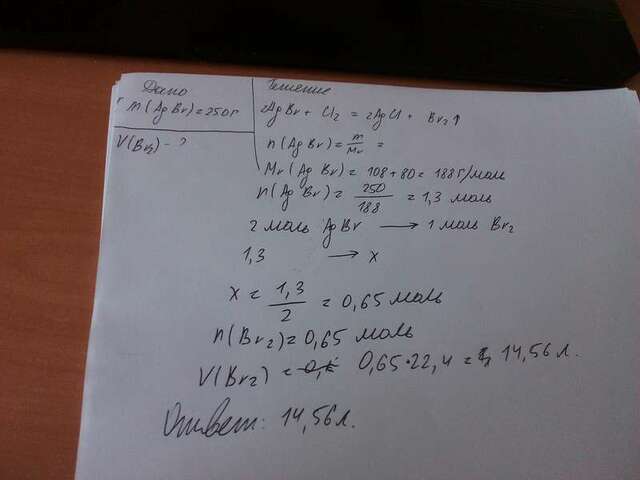 Дано
m(AgBr)=250г
V(Br2) - ?
Решение
2AgBr + Cl2 = 2AgCl + Br2↑
n(AgBr)= m/Mr =
Mr(AgBr) = 108+80 = 188 г/моль
n(AgBr) = 250/188 = 1,3 моль
2 моль AgBr → 1 моль Br2
1,3 → x
x = 1,3/2 = 0,65 моль
n(Br2)=0,65 моль
V(Br2) = 0,65·22,4 = 14,56 л.
Ответ: 14,56 л.